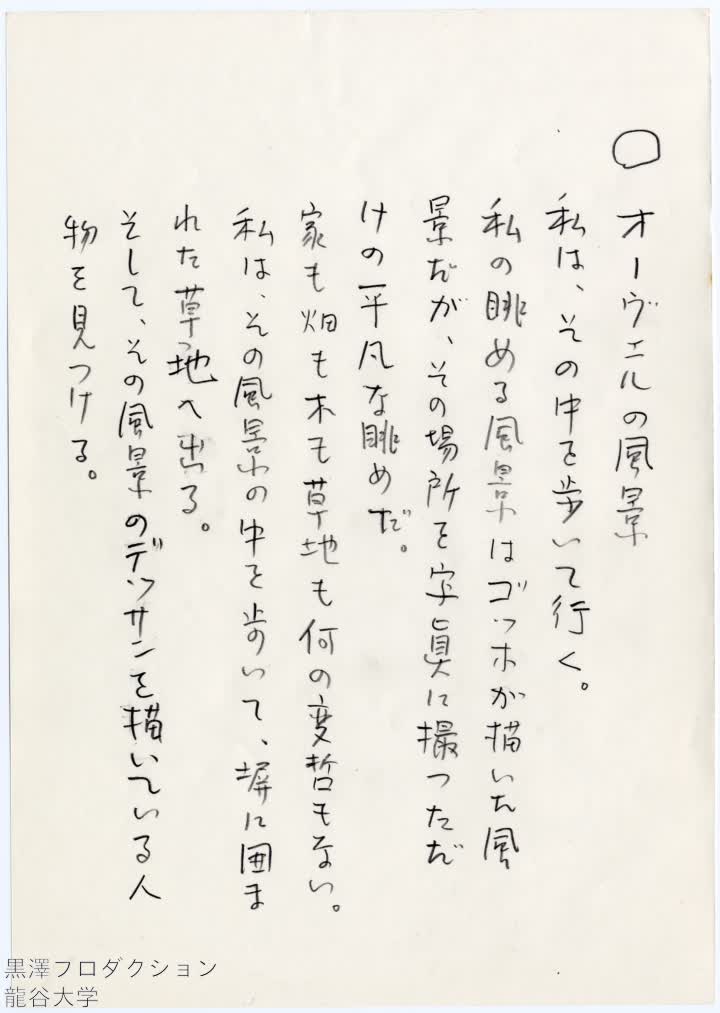 ○ オーヴェルの風景
私は、その中を歩いて行く。
私の眺める風景はゴッホが描いた風
景だが、その場所を写眞に撮っただ
けの平凡な眺めだ。
家も畑も木も草地も何の変哲もない。
私は、その風景の中を歩いて、塀に囲ま
れた草地へ出る。
そして、その風景のデッサンを描いている人
物を見つける。
黒澤プロダクション
龍谷大学